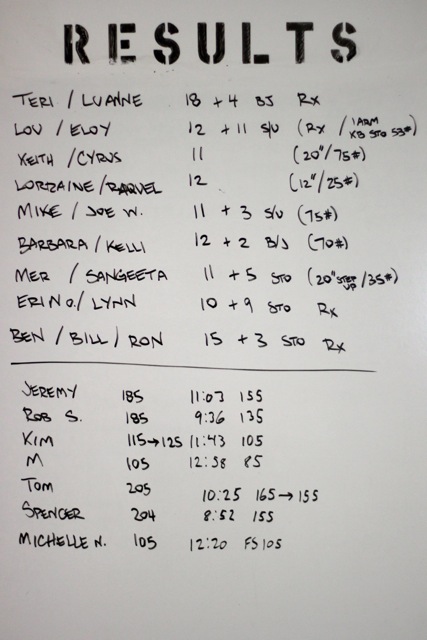 RESULTS
TERI / LUANNE 18 + 4 BJ Rx
LOU / ELOY 12 + 11 S/U (Rx / 1 ARM KB STO 53#)
KEITH / CYRUS 11 (20"/75#)
LORRAINE / RAQUEL 12 (12"/25#)
MIKE / JOE W. 11 + 3 S/U (75#)
BARBARA / KELLI 12 + 2 B/J (70#)
MER / SANGEETA 11 + 5 STO (20" STEP UP /35#)
ERIN O. / LYNN 10 + 9 STO Rx
BEN / BILL / RON 15 + 3 STO Rx
JEREMY 185 11:03 155
ROB S. 185 9:36 135
KIM 115→125 11:43 105
M 105 12:58 85
TOM 205 10:25 165→155
SPENCER 204 8:52 155
MICHELLE N. 105 12:20 FS105